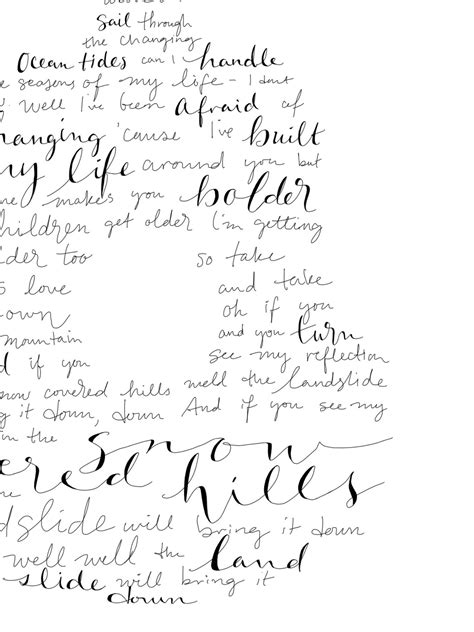 Sail through
the changing
Ocean tides can I handle
e seasons of my life - I dont
g well I've been afraid of
hanging 'cause I've built
y life around you but
me makes you bolder
hildren get older I'm getting
lder too so take
s love and take
own oh if you
mountain and you turn
d if you see my reflection
now covered hills well the landslide
g it down, down And if you see my
in the snow
ered hills
dslide will bring it down
well well the land
slide will bring it
down